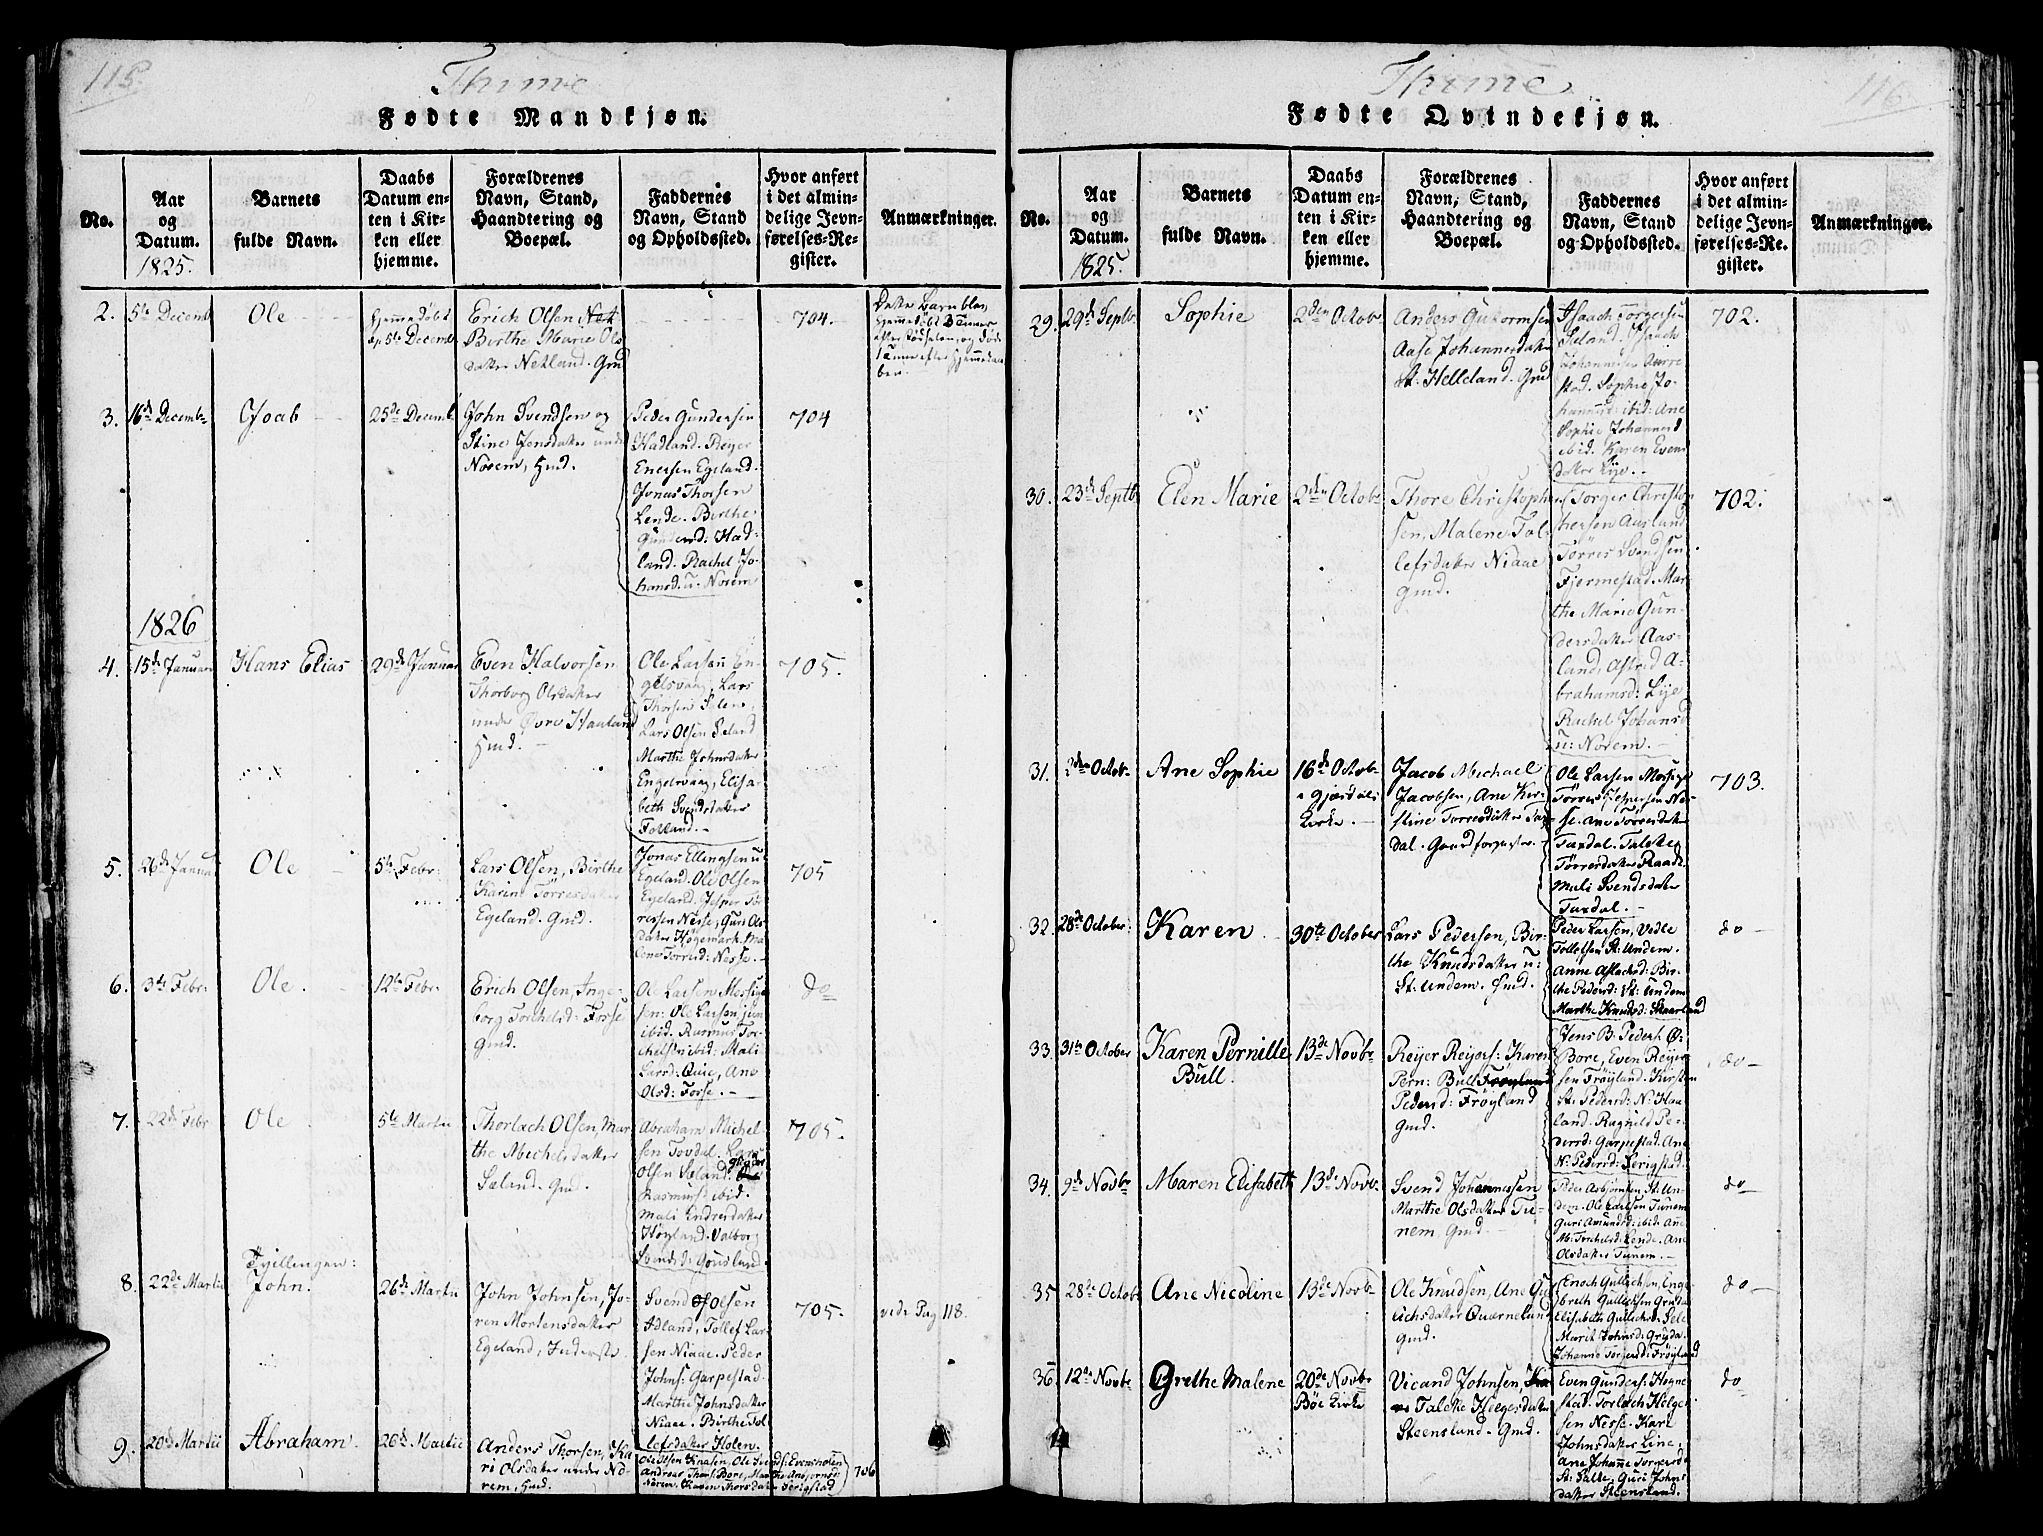 115.
Thime
Fødte Mandkjøn.
No.
Aar
og
Datum.
1825.
Barnets
fulde Navn.
Daabs
Datum en-
ten i Kir-
ken eller
hjemme.
Forældrenes
Navn, Stand,
Haandtering og
Boepæl.
Faddernes
Navn, Stand
og Opholdssted.
Hvor anført
i det almin-
delige Jevn-
førelses-Re-
gister.
Anmærkninger.
2.
5te Decemb
Ole
hjemmedøbt
5te Decemb
Erich Olsen
Birthe Marie Ols
datter Netland. Gmd
704.
Dette Barn blev
hjemmedøbt
3.
16de Decembr
Joab
25de Decemb
John Svendsen og
Stine Jensdatter under
Norem, Hmd.
Peder Gundersen
Hadland. Reyer
Enersen Egeland.
Jonas Thorsen
Lende. Birthe
Gundersd: Had-
land. Rachel Jo-
hansd. u. Norem
704
1826
4.
15de Januar
Hans Elias
29de Januar
Even Halvorsen
Thorborg Olsdatter
under Øvre Haaland
Hmd.
Ole Larsen En-
gelsvaag, Lars
Thorsen
Lars Olsen Seland
Marthe Johnsdatter
Engelsvaag, Elisa-
beth Svendsdatter
Folland.
705.
5.
26de Januar
Ole
5te Febr:
Lars Olsen, Birthe
Karine Tørresdatter
Egeland. Gmd.
Jonas Ellingsen u:
Egeland. Ole Olsen
Egeland. Jesper Tør-
resen Nesse, Guri Ols-
datter Høgemark. Ma-
lene Torresd: Nesse.
705
6.
3de Febr:
Ole.
12te Febr:
Erich Olsen, Inge-
borg Torkelsd: Forse
Gmd.
Ole Larsen Mossige
sen: Ole Larsen jun
ibid. Rasmus Tor-
chelsen ibid: Mali
Larsd: Qvie, Ane
Olsd: Forse.
do
7.
22de Febr
Ole.
5te Martii
Thorlach Olsen, Mar-
the Mechelsdatter
Sæland. Gmd.
Abraham Michel
sen Tovdal. Lars
Olsen Seland.
Rasmus ibid.
Mali Endresdatter
Høyland. Valborg
Svendsd: Gousland.
705.
8.
22de Martii
Tvillingen:
John.
26de Martii
John Johnsen, Jo-
ren Mortensdatter
Egeland, Inderste.
Svend Olsen
Adland, Tollef Lar-
sen Niaae. Peder
Johns: Garpestad.
Marthe Johnsdatter
Niaae. Birthe Tol-
lefsdatter Holen.
705.
vide Pag 118.
9.
20de Martii
Abraham.
26de Martii
Anders Thorsen, Ka-
ri Olsdatter under No-
rem, Hmd.
Ole Olsen Knasen, Ole Svends: Evensholen
Andreas Thors: Bore,
Norem. Karen Thorsdatter Serigstad
706
116.
Thime
Fødte Qvindekjøn.
No.
Aar
og
Datum.
1825.
Barnets
fulde Navn.
Daabs
Datum en-
ten i Kir-
ken eller
hjemme.
Forældrenes
Navn, Stand,
Haandtering og
Boepæl.
Faddernes
Navn, Stand
og Opholdssted.
Hvor anført
i det almin-
delige Jevn-
førelses-Re-
gister.
Anmærkninger.
29.
29de Septbr
Sophie
2den Octobr
Anders Guttormsen
Aase Johannesdatter
St: Helleland. Gmd
Isaach Torgersen
Seland. Isaach
Johannessen Aarre
stad. Sophie Jo-
hannesd: ibid: Ane
Sophie Johannesd
ibid. Karen Evens
datter Lye.
702.
30.
23de Septbr
Elen Marie
2den Octobr
Thore Christopher
sen, Malene Tol-
lefsdatter Niaae
Gmd.
Torger Christop
hersen Aasland
Tørres Svendsen
Fjermestad. Mar-
the Marie Gun-
dersdatter Aas-
land, Astrid A-
brahamsd: Lye
Rachel Johansd
u: Norem.
702.
31.
2den Octobr
Ane Sophie
16de Octobr
i Gjæsdals
Kirke.
Jacob Michael
Jacobsen, Ane Kir-
stine Torresdatter Tax
dal.
Ole Larsen Mossige
Tørres Jespersen Nes-
se. Ane Tørresdatter
Taxdal. Taletta
Tørresdatter Raade
Mali Svendsdatter
Taxdal.
703.
32.
28de October
Karen
30te October
Lars Pedersen, Bir-
the Knudsdatter u:
St: Undem. Hmd.
Peder Larsen, Vedle
Tollefsen St: Undem.
Anne Aslachsd: Bir-
the Pedersd: St: Undem
Marthe Knudsd: Skaarland
do
33.
31te October
Karen Pernille
Bull.
13de Novbr
Reyer Reyers: Karen
Pern: Bull
Pedersd: Frøyland
Gmd.
Jens B. Peders: Ø:
Bore, Even Reyer-
sen Frøyland. Kirsten
St: Pedersd: N: Haa-
land. Ragnild Pe-
dersd: Garpestad. Ane
N: Pedersd: Serigstad.
do
34.
9de Novbr
Maren Elisabeth
13de Novbr
Svend Johannessen
Marthe Olsdatter Tu-
nem, Gmd
Peder Asbjørnsen St: Un-
dem. Ole Larsen Tunem
Guri Amundsd: ibid: Ane
M: Torchelsd: Lende. Ane
Olsdatter Tunem.
do
35
28de Octobr
Ane Nicoline
13de Novbr
Ole Knudsen, Ane Gu
lichsdatter Qvarnelund
Gmd.
Enoch Gullachsen, Enge-
breth Gullachsen Gruda
Elisabeth Gullachsd: Sele
Marit Johnsd: Gruda.
Johanne Torgersd: Frøyland
do
36.
12te Novbr
Grethe Malene
20de Novbr
Bøe Kirke
Vicand Johnsen,
Taleke Helgesdatter
Steensland. Gmd.
Even Gunders: Hogne
stad. Torlach Helge-
sen Nesse. Kari
Johnsdatter Line,
Ane Johanne Torgersd:
St: Salte, Guri Johns
datter Steensland.
do